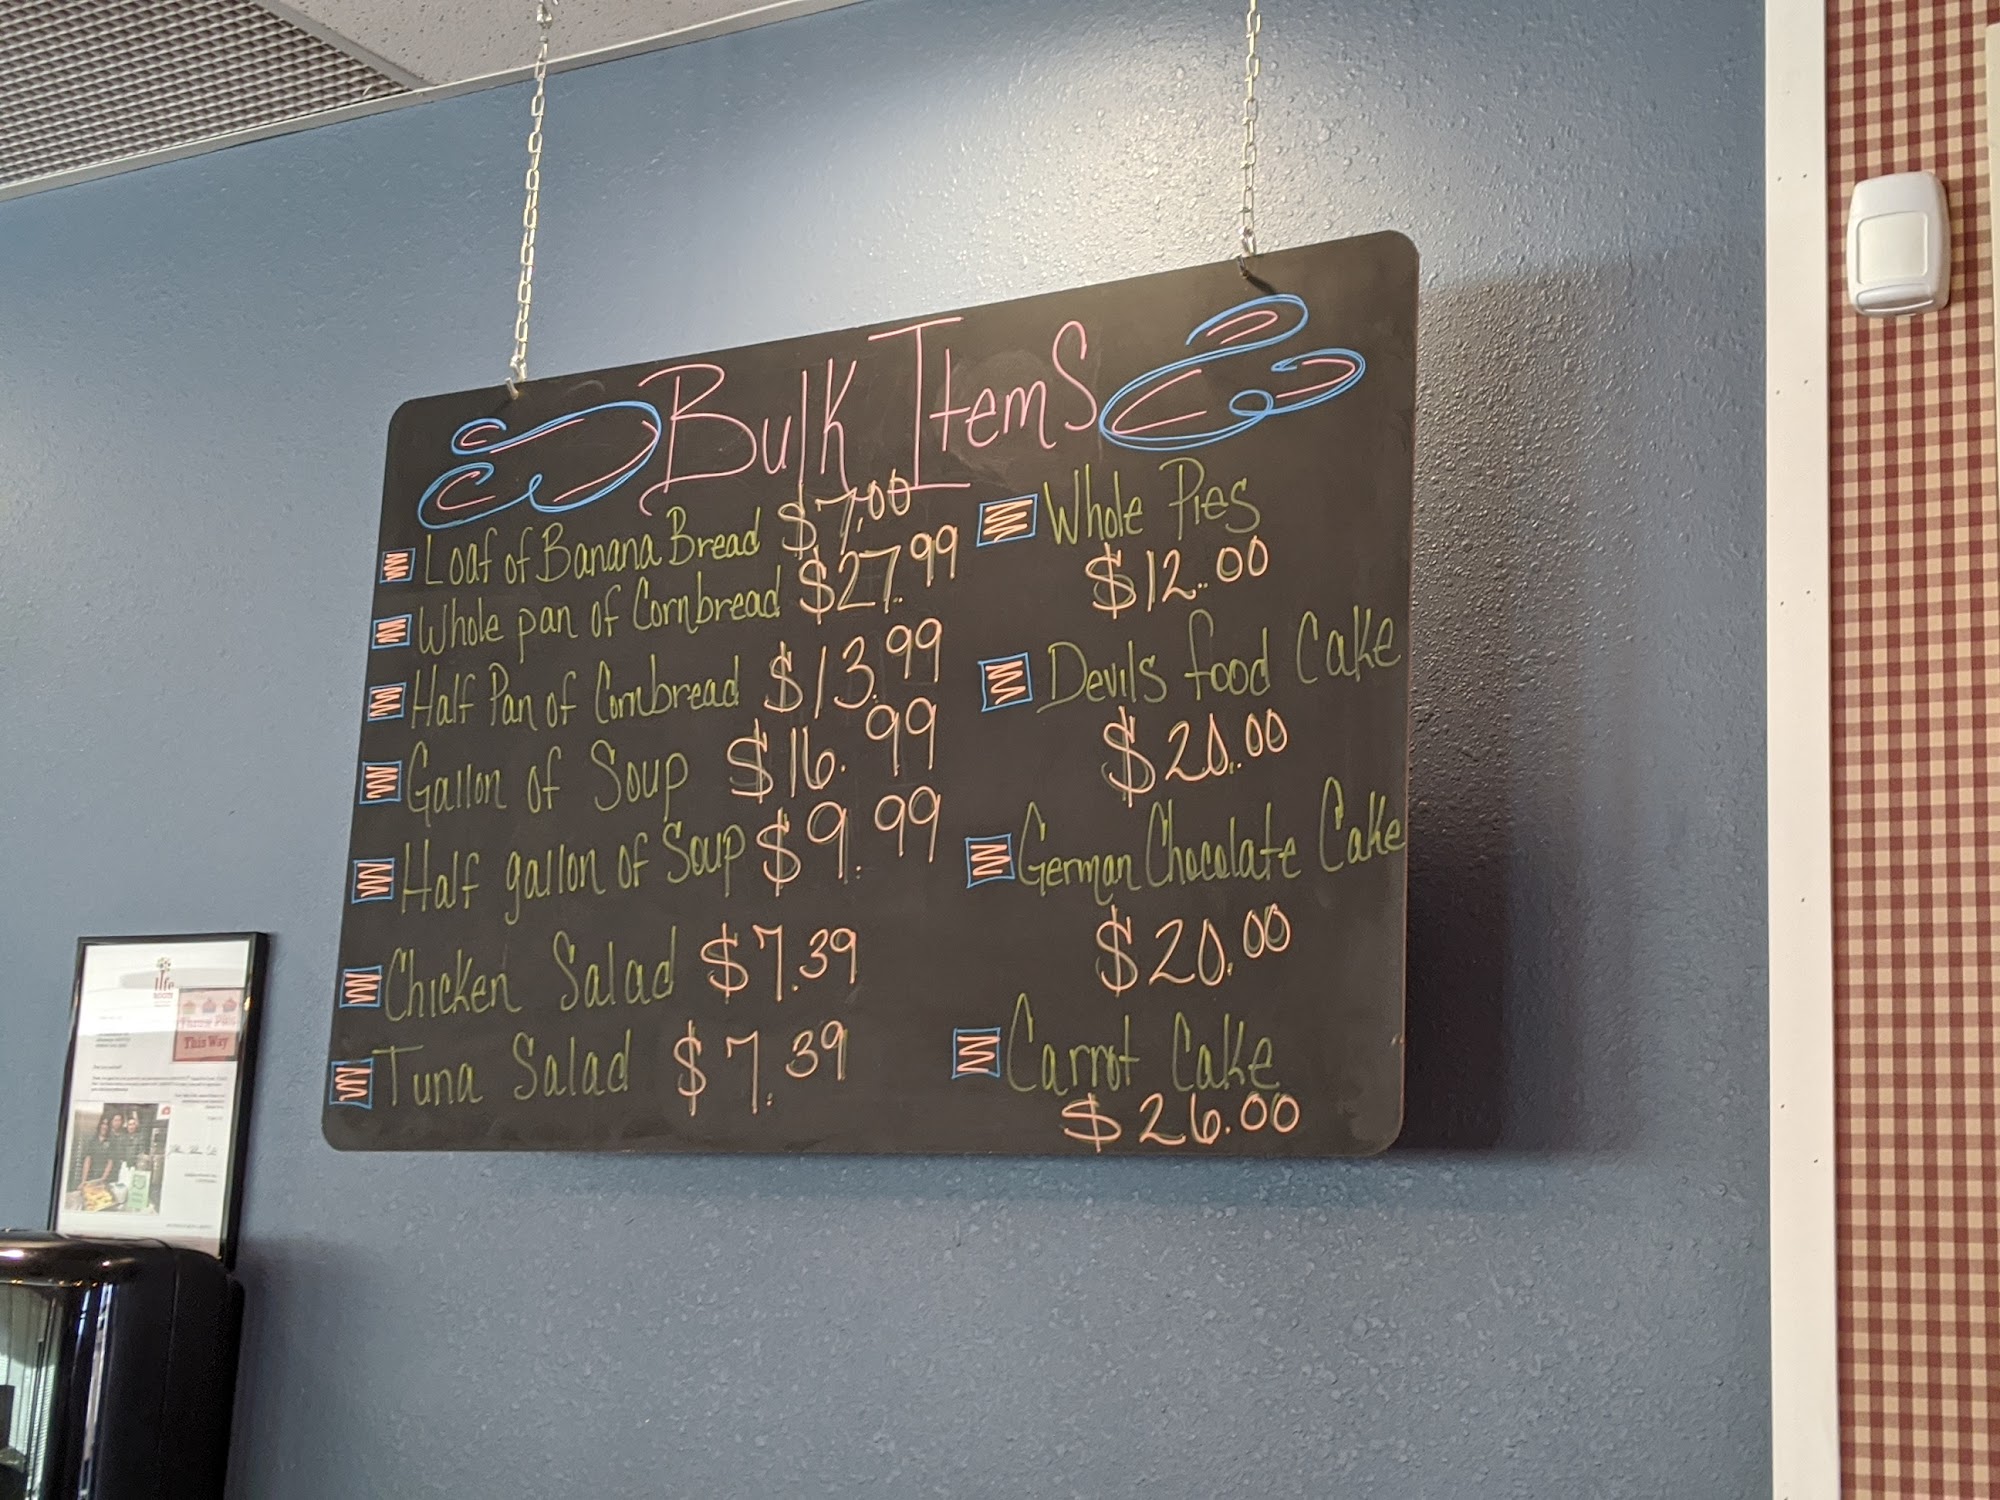 Bulk Items
Loaf of Banana Bread $7.00
Whole pan of Cornbread $27.99
Half Pan of Cornbread $13.99
Gallon of Soup $16.99
Half gallon of Soup $9.99
Chicken Salad $7.39
Tuna Salad $7.39
Whole Pies
$12.00
Devils food Cake
$20.00
German Chocolate Cake
$20.00
Carrot Cake
$26.00
This Way